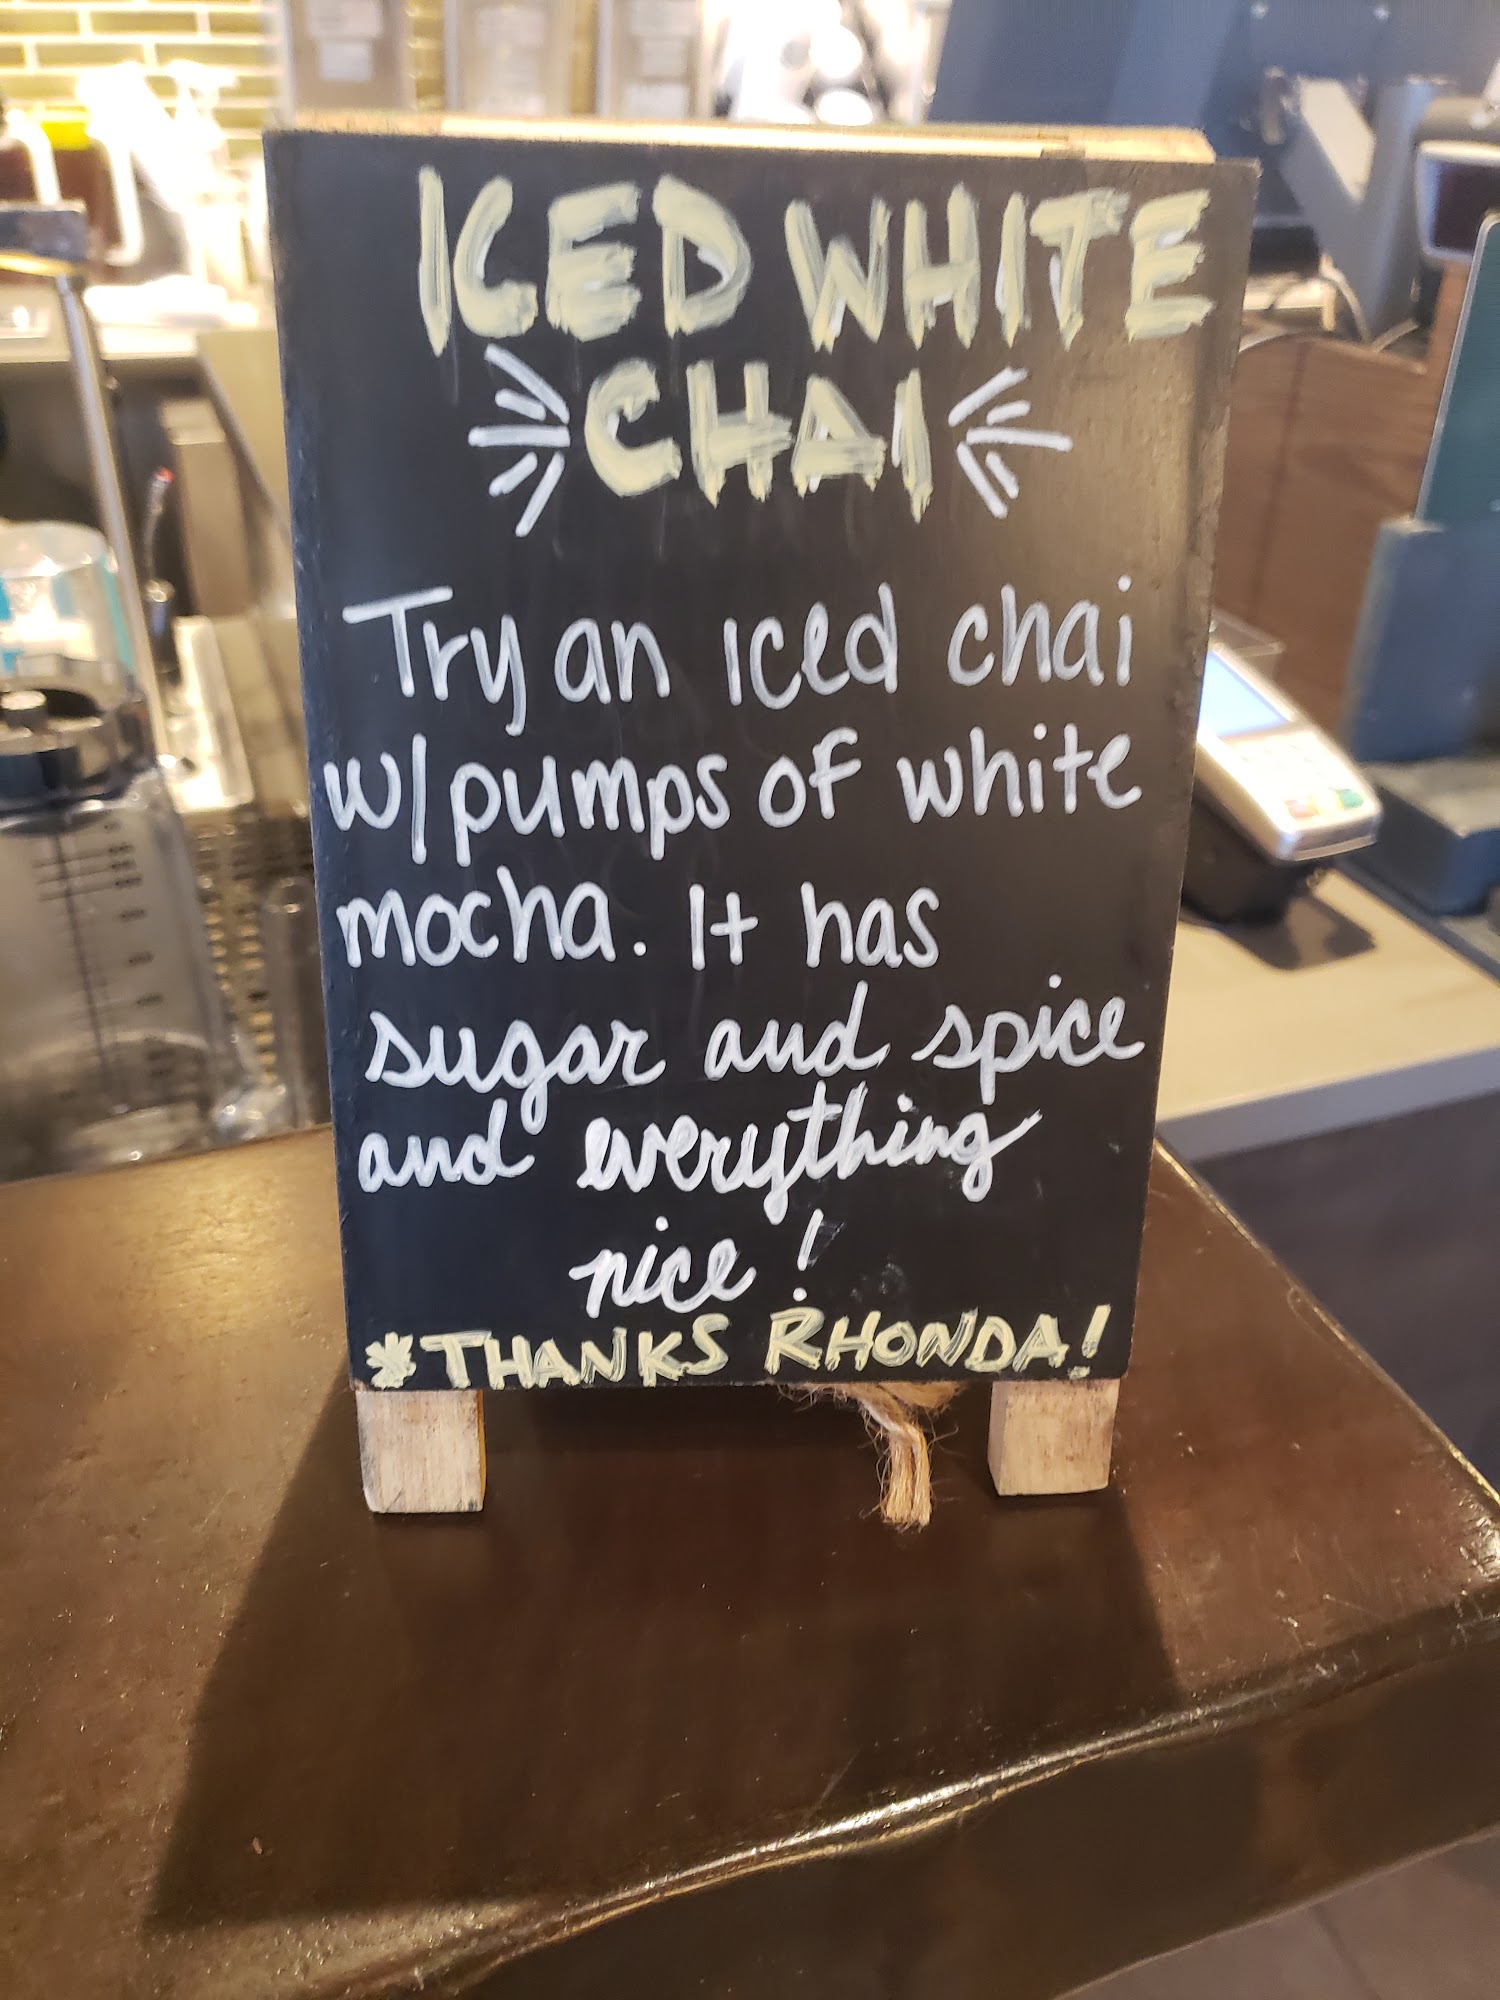 ICED WHITE
CHAI
Try an iced chai
w/pumps of white
mocha. It has
sugar and spice
and everything
nice!
*THANKS RHONDA!